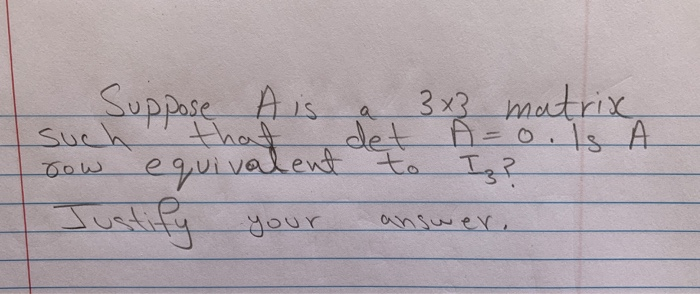 Suppose A is a 3×3 matrix
such that det A = 0. Is A
row equivalent to I₃?
Justify your answer.